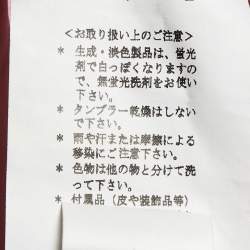 <お取り扱い上のご注意>
* 生成・淡色製品は、蛍光
剤で白っぽくなりますの
で、無蛍光洗剤をお使い
下さい。
* タンブラー乾燥はしない
で下さい。
* 雨や汗または摩擦による
移染にご注意下さい。
* 色物は他の物と分けて洗
って下さい。
* 付属品（皮や装飾品等）